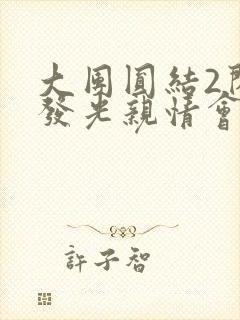 大團圓結2
發光親情會
許子智